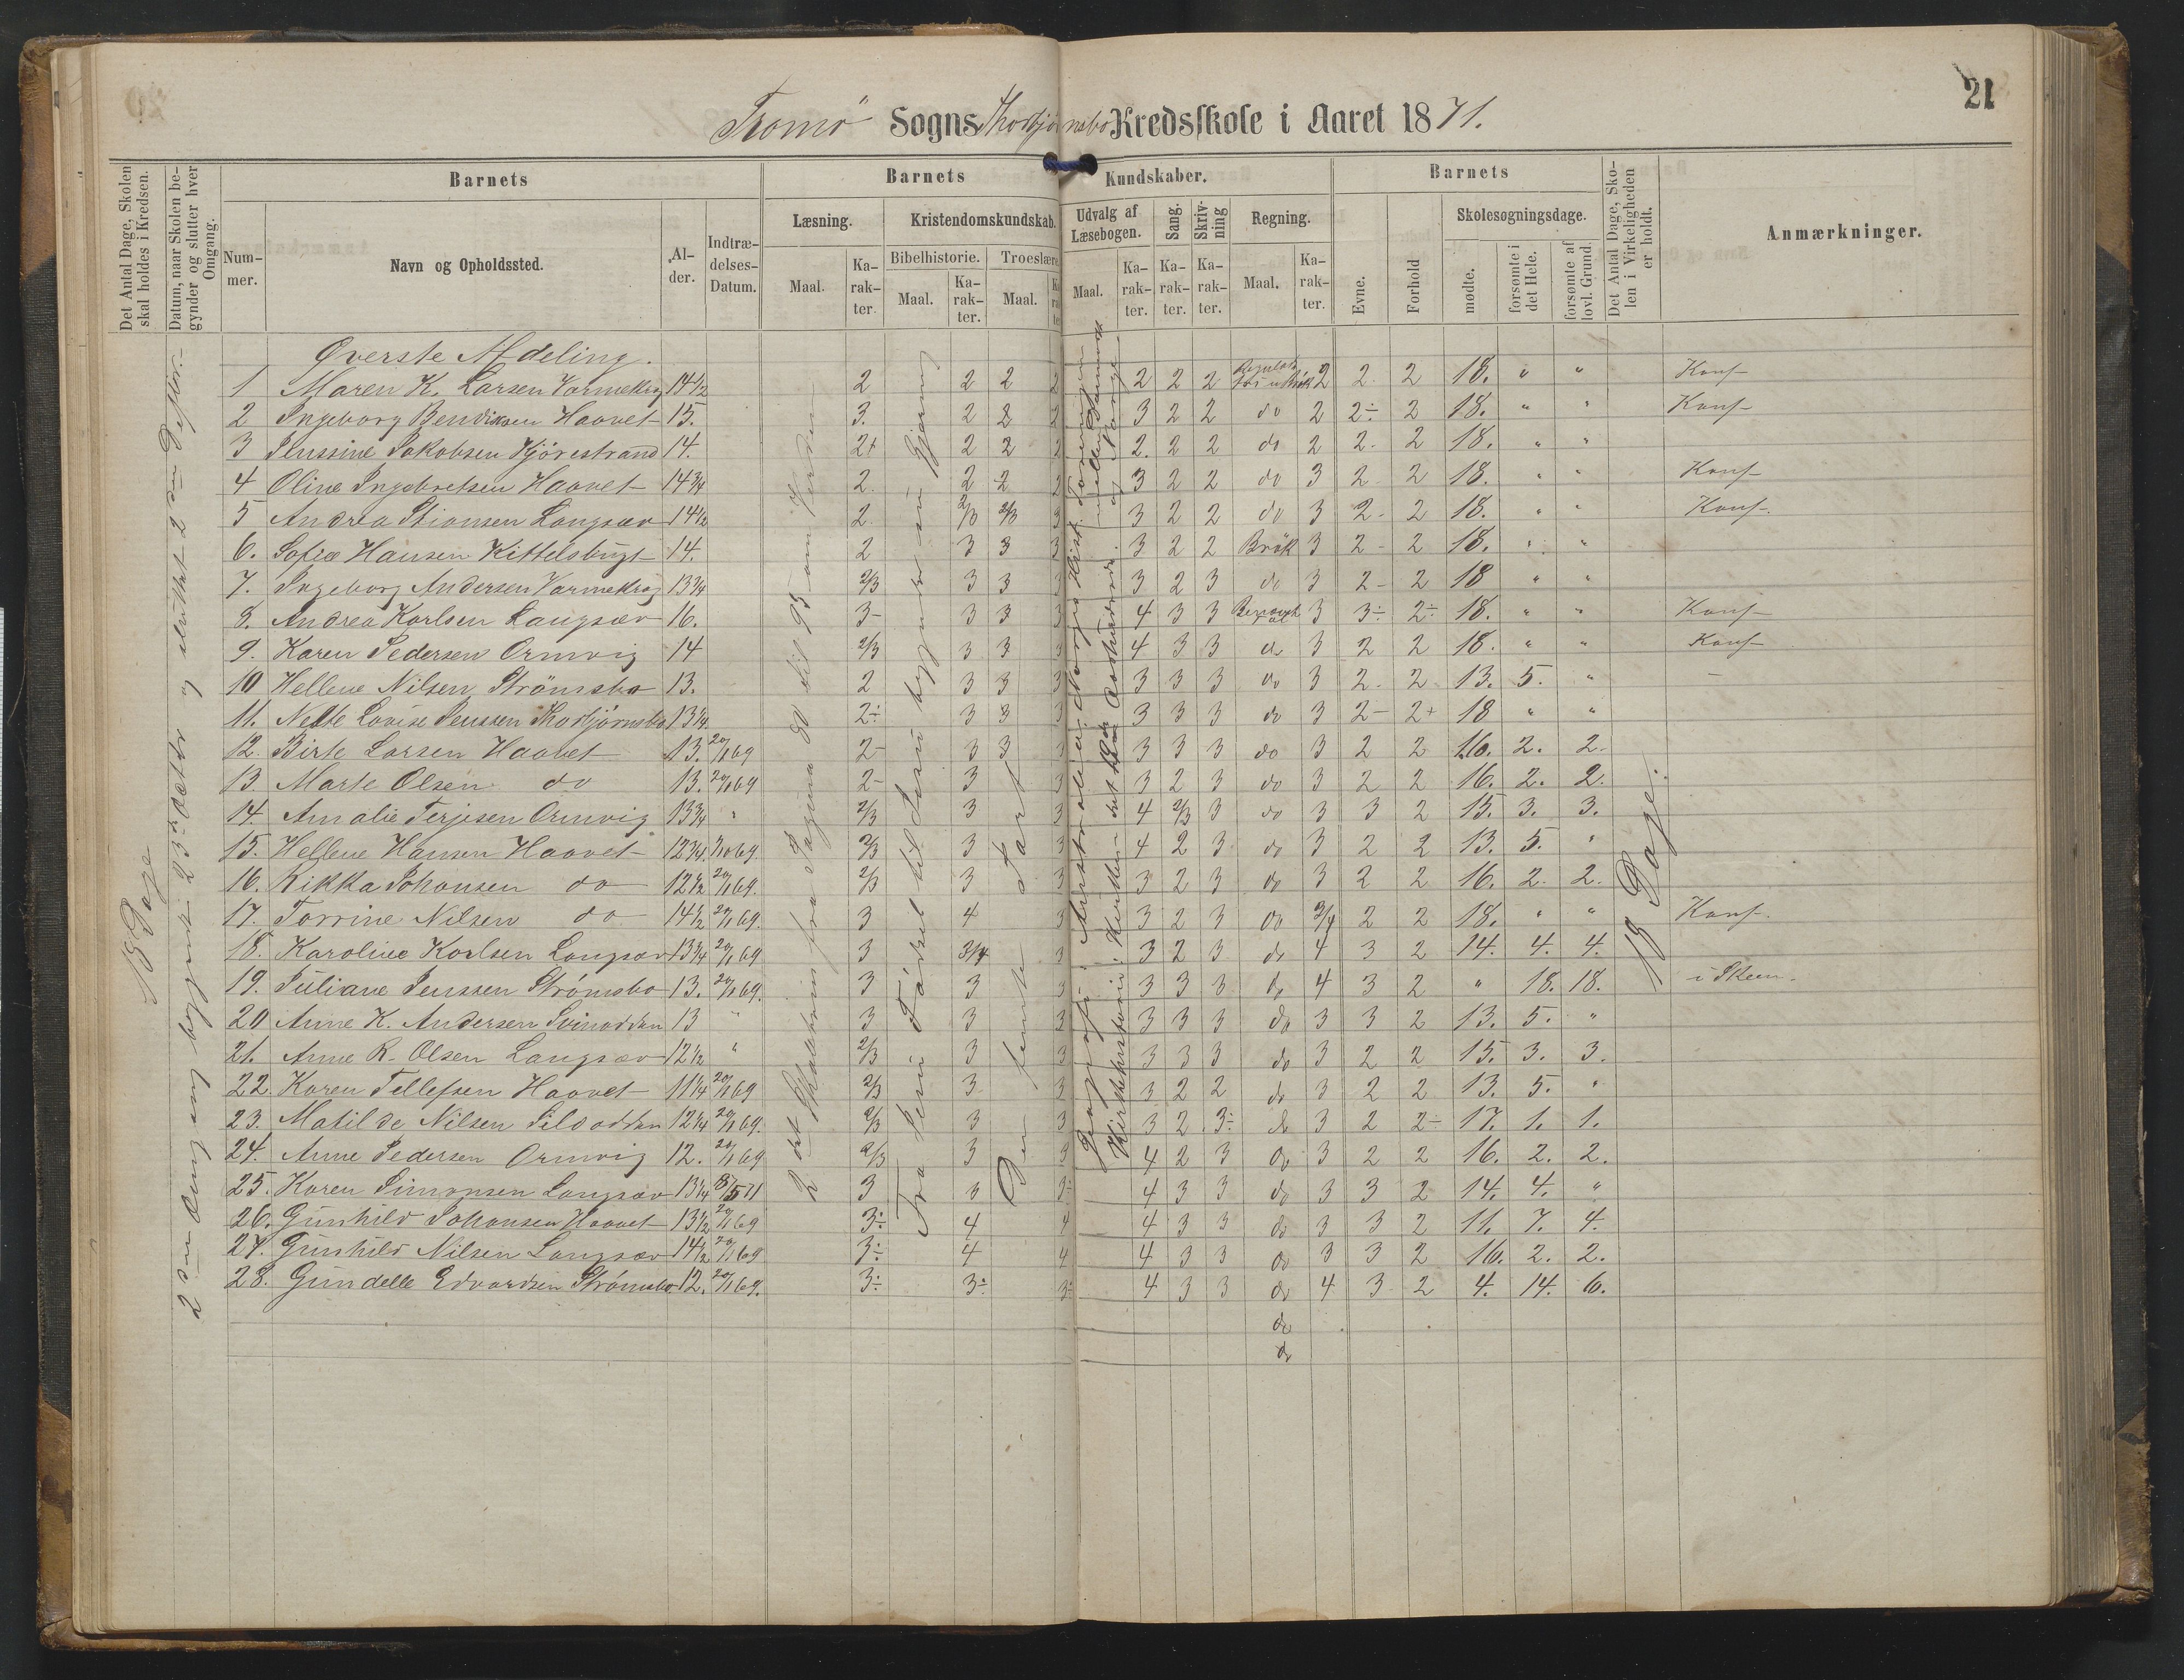 21
Tromø Sogns Thorbjørnsbo Kredsskole i Aaret 1871.
Det Antal Dage, Skolen skal holdes i Kredsen.
Datum, naar Skolen begynder og slutter hver Omgang.
Barnets
Nummer.
Navn og Opholdssted.
Alder.
Indtrædelses-Datum.
Barnets Kundskaber.
Læsning.
Maal.
Karakter
Kristendomskundskab.
Bibelhistorie.
Maal.
Karakter.
Troeslære
Maal.
Udvalg af Læsebogen.
Maal.
Karakter.
Sang.
Karakter.
Skrivning
Karakter.
Regning.
Maal.
Karakter.
Barnets
Evne.
Forhold
Skolesøgningsdage.
mødte.
forsømte i det Hele.
forsømte af lovl. Grund.
Det Antal Dage, Skolen i Virkeligheden er holdt.
Anmærkninger.
18 Dage
18 Dage.
Øverste Afdeling.
1 Maren K. Larsen Varmekrog 14 1/2 2 2 2 2 2 2 2 2 2 2 18. " " Konf
2 Ingeborg Bendixen Haavet 15. 3. 2 2 2 3 2 2 do 2 2÷ 2 18. " " Konf
3 Jenssine Jakobsen Hjørestrand 14. 2+ 2 2 2 2. 2 2 do 2 2- 2 18. " "
4 Oline Ingebretsen Haavet 14 3/4 2. 2 2 2 3 2 2 do 3 2- 2 18. " " Konf
5 Andrea Stiansen Langsæv 14 1/2 2. 2/3 2/3 3 3 2 2 do 3 2- 2 18. " " Konf.
6. Sofie Hansen Kittelsbugt 14. 2 3 3 3 3 2 2 Brøk 3 2- 2 18. " "
7. Ingeborg Andersen Varmekrog 13 3/4 2/3 3 3 3 3 2 3 do 3 2- 2 18 " "
8. Andrea Karlsen Langsæv 16. 3- 3 3 3 4 3 3 3 3÷ 2÷ 18. " " Konf
9. Karen Pedersen Ormvig 14 2/3 3 3 3 4 3 3 do 3 2 2 18. " " Konf
10 Hellene Nilsen Strømsbo 13. 2 3 3 3 3 3 3 do 3 2- 2 13. 5. "
11. Nelle Lovise Jenssen Thorbjørnsbo 13 1/4 2÷ 3 3 3 3 3 3 do 3 2- 2+ 18 " "
12. Birte Larsen Haavet 13. 20/11 69 2- 3 3 3 3 3 3 do 3 2 2 16. 2. 2.
13. Marte Olsen do 13. 20/11 69 2- 3 3 3 2 3 do 3 2 2 16. 2. 2.
14 Amalie Terjesen Ormvig 13 3/4 " 2/3 3 3 4 2/3 3 do 3 3 2 15. 3. 3.
15. Hellene Hansen Haavet 12 3/4 69. 2/3 3 3 4 2 3 do 3 2 2 13. 5. "
16. Kikka Johansen do 12 1/2 20/11 69. 2/3 3 3 3 2 3 do 3 2 2 16. 2. 2.
17. Torrine Nilsen do 14 1/2 20/11 69. 3 4 3 3 2 3 do 3/4 2 2 18. " " Konf.
18. Karoline Karlsen Langsæv 13 3/4 20/11 69 3 3/4 3 3 2 3 do 4 3 2 14. 4. 4.
19. Juliane Jenssen Strømsbo 13. 20/11 69. 3 3 3 3 3 3 do 4 3 2 " 18. 18. i Skeen.
20 Anne K. Andersen Svinodden 13 " 3 3 3 3 3 3 do 3 3 2 13. 5. "
21. Anne R. Olsen Langsæv 12 1/2 " 2/3 3 3 3 3 3 do 3 2 2 15. 3. 3.
22. Karen Tellefsen Haavet 11 1/4 20/11 69 2/3 3 3 3 2 2 do 3 2 2 13. 5. "
23. Matilde Nilsen Sildodden 12 1/4 20/11 69. 2/3 3 3 3 2 3÷ do 3 2 2÷ 17. 1. 1.
24. Anne Pedersen Ormvig 12. 20/11 69 2/3 3 3 4 2 3 do 3 2 2 16. 2. 2.
25. Karen Simonsen Langsæv 13 1/4 8/5 71 3 3 3÷ 4 3 3 do 3 3 2 14. 4. "
26. Gunhild Johansen Haavet 13 1/2 20/11 69 3÷ 4 4 4 3 3 do 3 3 2 11. 7. 4.
27. Gunhild Nilsen Langsæv 14 1/2 20/11 69 3÷ 4 4 4 3 3 do 3 3 2 16. 2. 2.
28. Gundelle Edvardsen Strømsbo 12. 20/11 69. 3÷ 3÷ 3÷ 4 3 3 do 4 3 2 4. 14. 6.
do
do